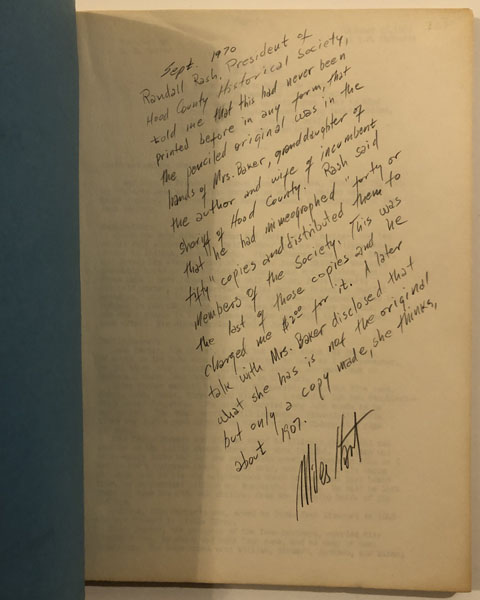 Sept. 1970
Randall Rash, President of
Hood County Historical Society,
told me that this had never been
printed before in any form, that
the penciled original was in the
hands of Mrs. Baker, granddaughter of
the author and wife of incumbent
sheriff of Hood County. Rash said
that he had mimeographed "forty or
fifty" copies and distributed them to
members of the Society. This was
the last of those copies and he
charged me $2.00 for it. A later
talk with Mrs. Baker disclosed that
what she has is not the original
but only a copy made, she thinks,
about 1907.
Miles Hart